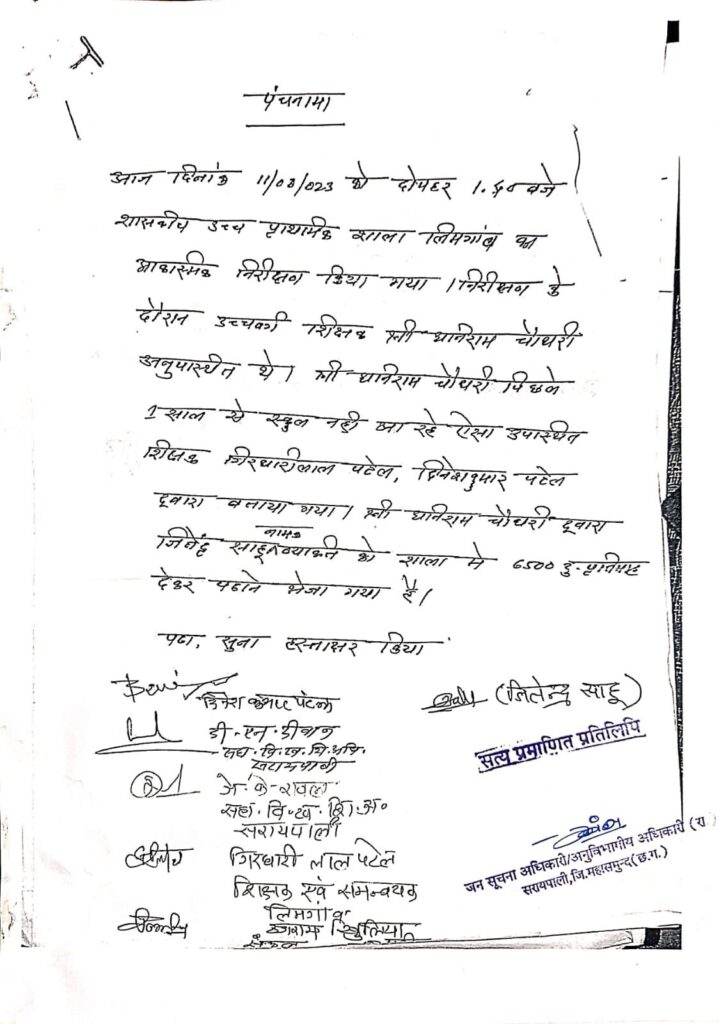 पंचनामा
आज दिनांक 11/08/023 को दोपहर 1.40 बजे
शासकीय उच्च प्राथमिक शाला लिमगांव का
आकास्मिक निरीक्षण किया गया । निरीक्षण के
दौरान उच्चवर्ग शिक्षक श्री धनिराम चौधरी
अनुपास्थित थे। श्री धनिराम चौधरी पिछले
1 साल से स्कूल नही आ रहे ऐसा उपास्थित
शिक्षक गिरधारीलाल पटेल, दिनेशकुमार पटेल
द्वारा बताया गया। श्री धनिराम चौधरी द्वारा
नामक
साहू व्याक्ति को शाला मे 6500 रु. प्रतिमाह
देकर पढाने भेजा गया है।
पढा, सुना हस्ताक्षर किया
दिनेश कुमार पटेल
(जितेन्द्र साहू)
डी. एन. दीवान
सहा. वि. ख. शि. अधि.
सरायपाली
सत्य प्रमाणित प्रतिलिपि
जे. के. रावल
सहा. वि. ख. शि. अ.
सरायपाली
गिरधारी लाल पटेल
शिक्षक एवं समन्वयक
लिमगांव
जन सूचना अधिकारी/अनुविभागीय अधिकारी (रा
सरायपाली, जि. महासमुन्द (छ.ग.)